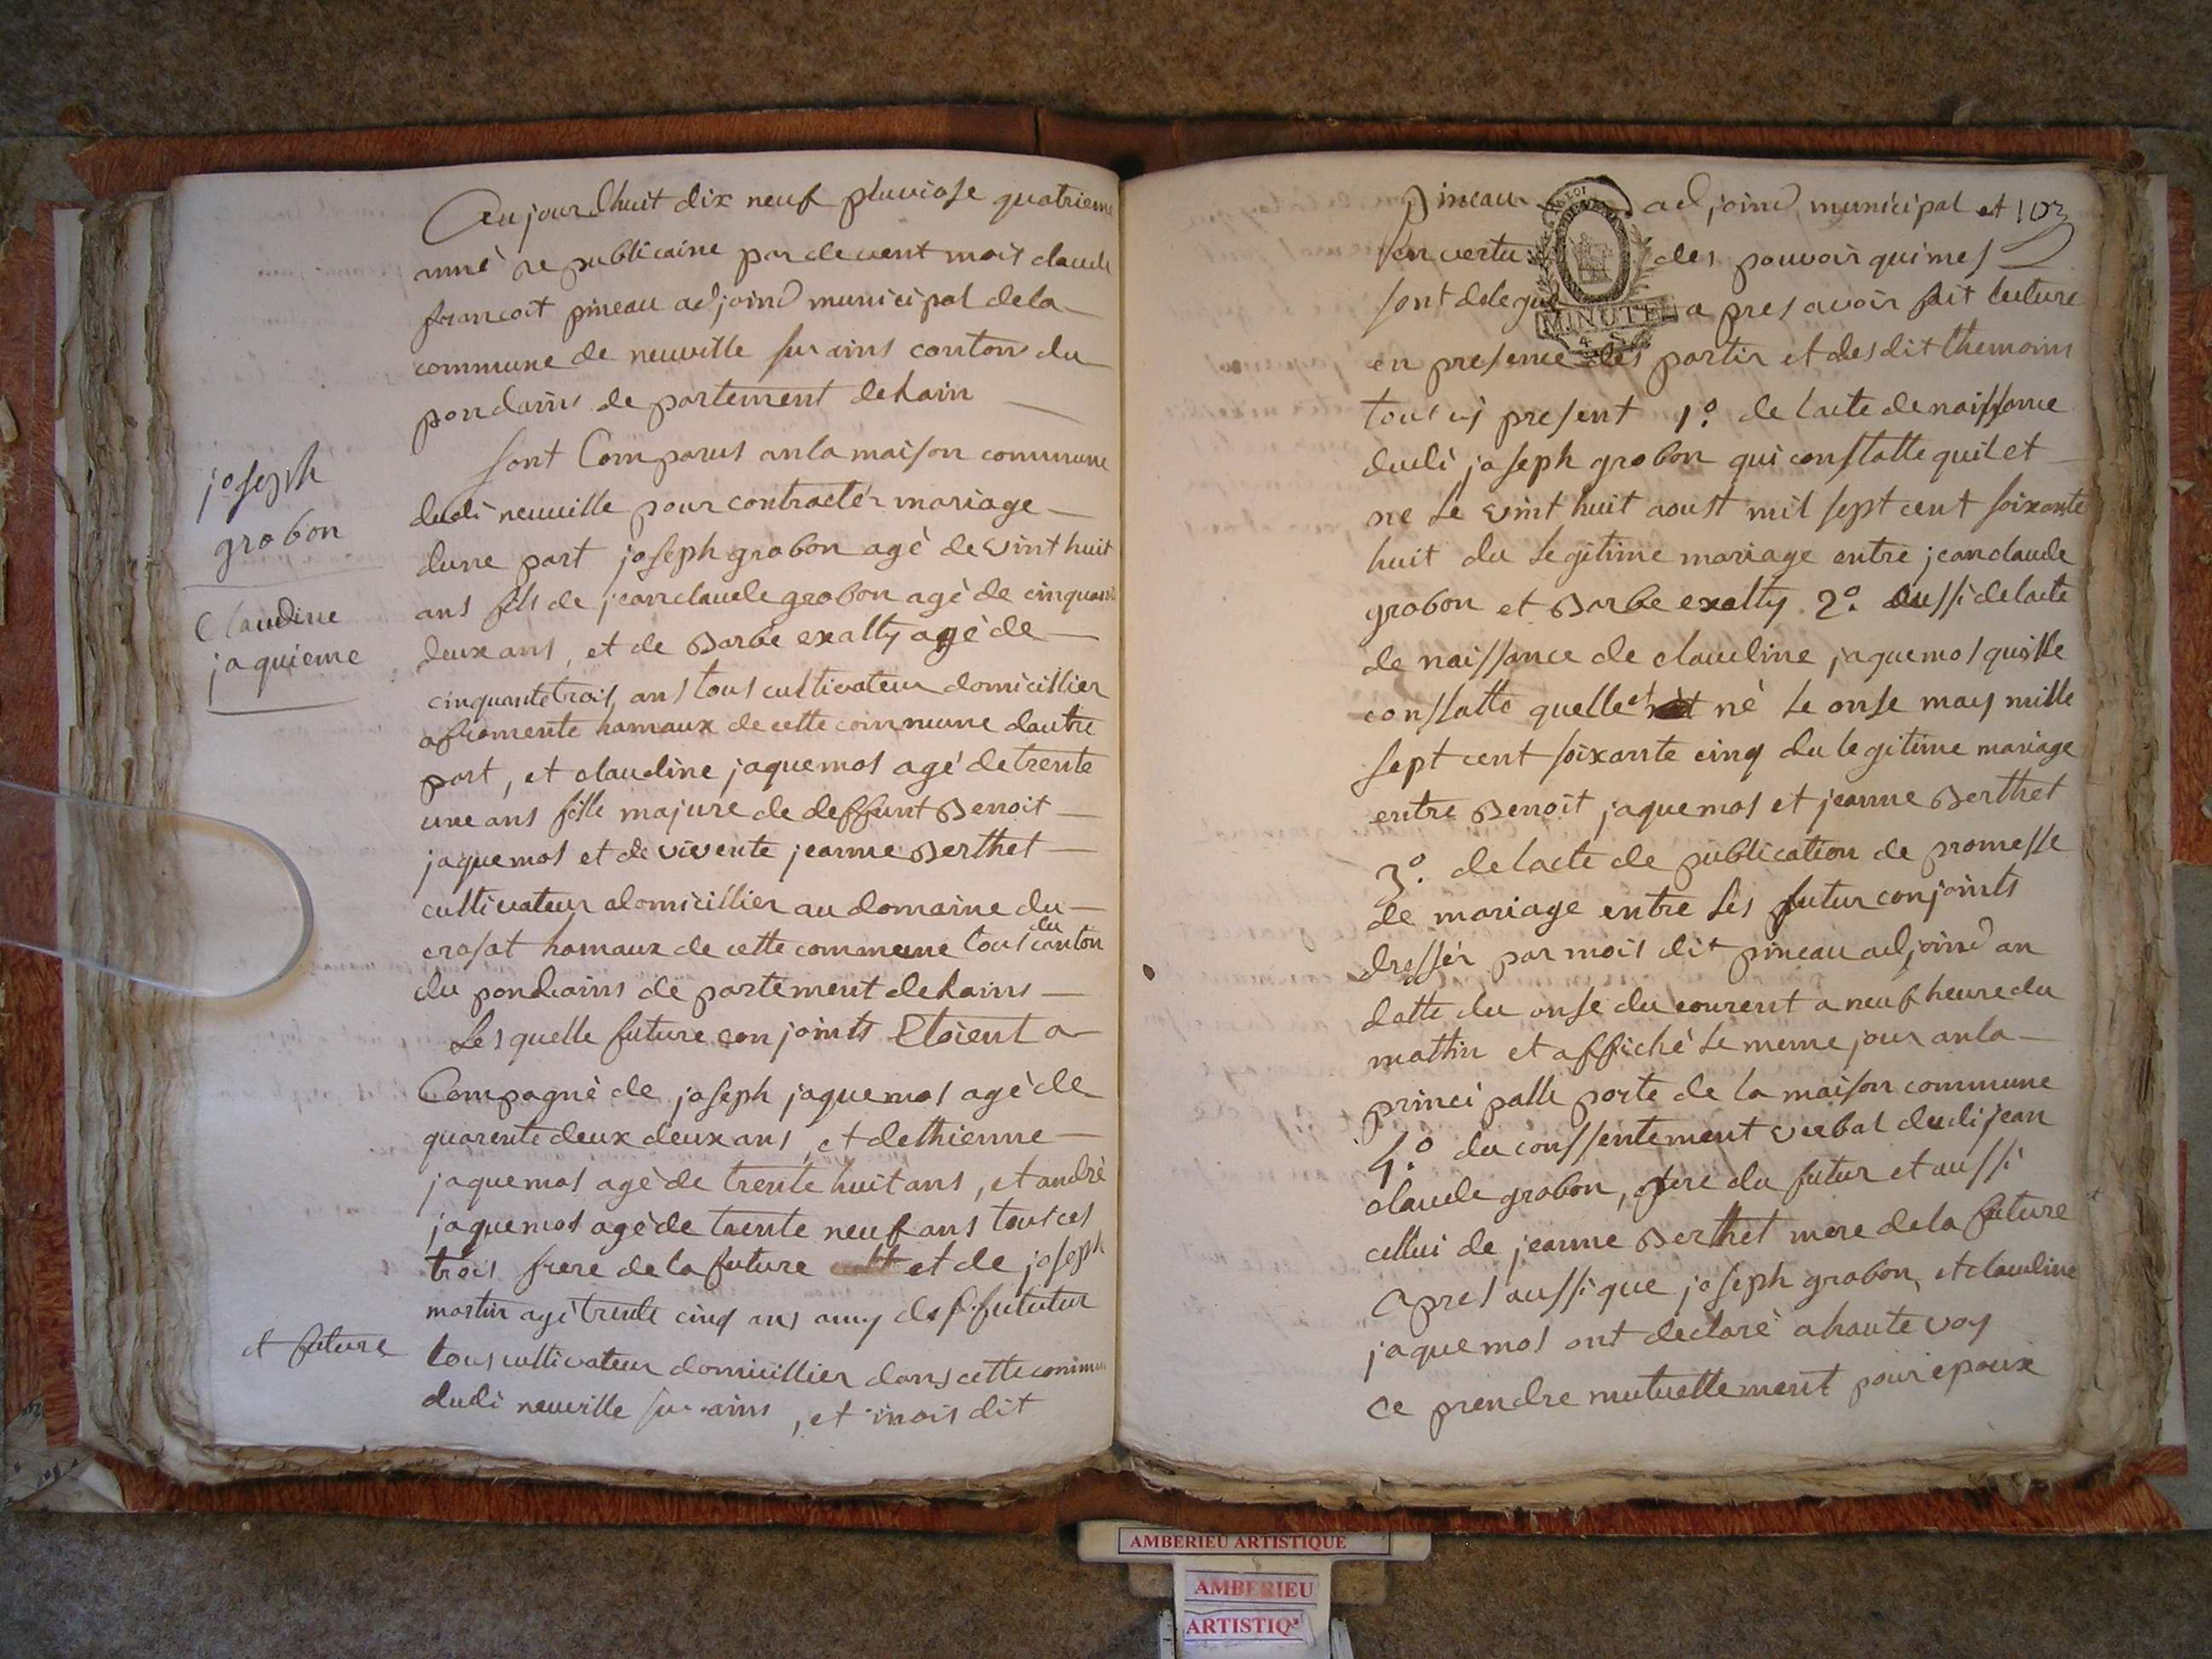 Aujourdhuit dix neuf pluviose quatrieme
anné republicaine par devent moit claude
francoit pineau adjoind municipal dela
commune de neuville sur ains conton du
pondains departement dehain
sont Comparus anla maison commune
joseph
grobon
dudi neuville pour contracter mariage
dune part joseph grobon agè de vint huit
ans fils de jeanclaude grobon agè de cinquante
Claudine
jaquieme
deuxans, et de Barbe exalty agè de
cinquante trois ans tous cultivateur domicillier
afromente hamaux de cette commune dautre
part, et claudine jaquemos agé detrente
une ans fille majure de deffunt Benoit
jaquemos et de vivente jeanne Berthet
cultivateur domicillier au domaine du
crosat hamaux de cette commune tous du canton
du pondains departement dehains
Lesquelle future conjoints Etoient a
Compagnè de joseph jaquemos agè de
quarente deux deux ans, et dethienne
jaquemos agè de trente huit ans, et andrè
jaquemos agè de trente neuf ans tout ces
trois frere de la future et de joseph
martin agè trente cinq ans amy des futur
et future
tous cultivateur domicillier dans cette commune
dudi neuville sur ains, et mois dit
Pineau adjoind municipal et 103
LA LOI
en vertu des pouvoir quimes
sont delegué apres avoir fait lecture
MINUTE
4 S
en presence des partir et desdit themoins
tous cy present 1.º de lacte de naissance
dudi joseph grobon qui constatte quil et
ne Le vint huit aoust mil sept cent soixante
huit du Legitime mariage entre jeanclaude
grobon et Barbe exalty 2º. aussi de lacte
de naissance de claudine jaquemos quille
constatte quelle et nè Le onse may mille
sept cent soixante cinq du legitime mariage
entre Benoit jaquemos et jeanne Berthet
3º. de lacte de publication de promesse
de mariage entre Les futur conjoints
dressér par mois dit pineau adjoind an
datte du onse du courent a neuf heure du
mattin et affichè Le meme jour anla
princi palle porte de la maison commune
4.º du conssentement verbal dudi jean
claude grobon, pere du futur et aussi
cellui de jeanne Berthet mere dela future
apres aussi que joseph grobon, et claudine
jaquemos ont declarè ahaute voy
ce prendre mutuellement pour epoux
AMBERIEU ARTISTIQUE
AMBERIEU
ARTISTIQ